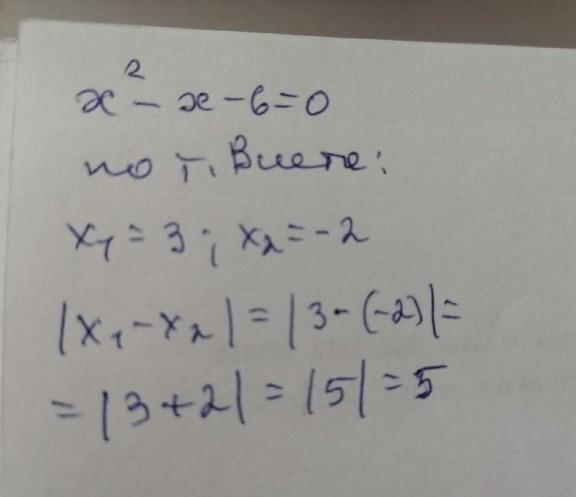 x² - x - 6 = 0
по т. Виета:
x₁ = 3 ; x₂ = -2
|x₁ - x₂| = |3 - (-2)| =
= |3 + 2| = |5| = 5